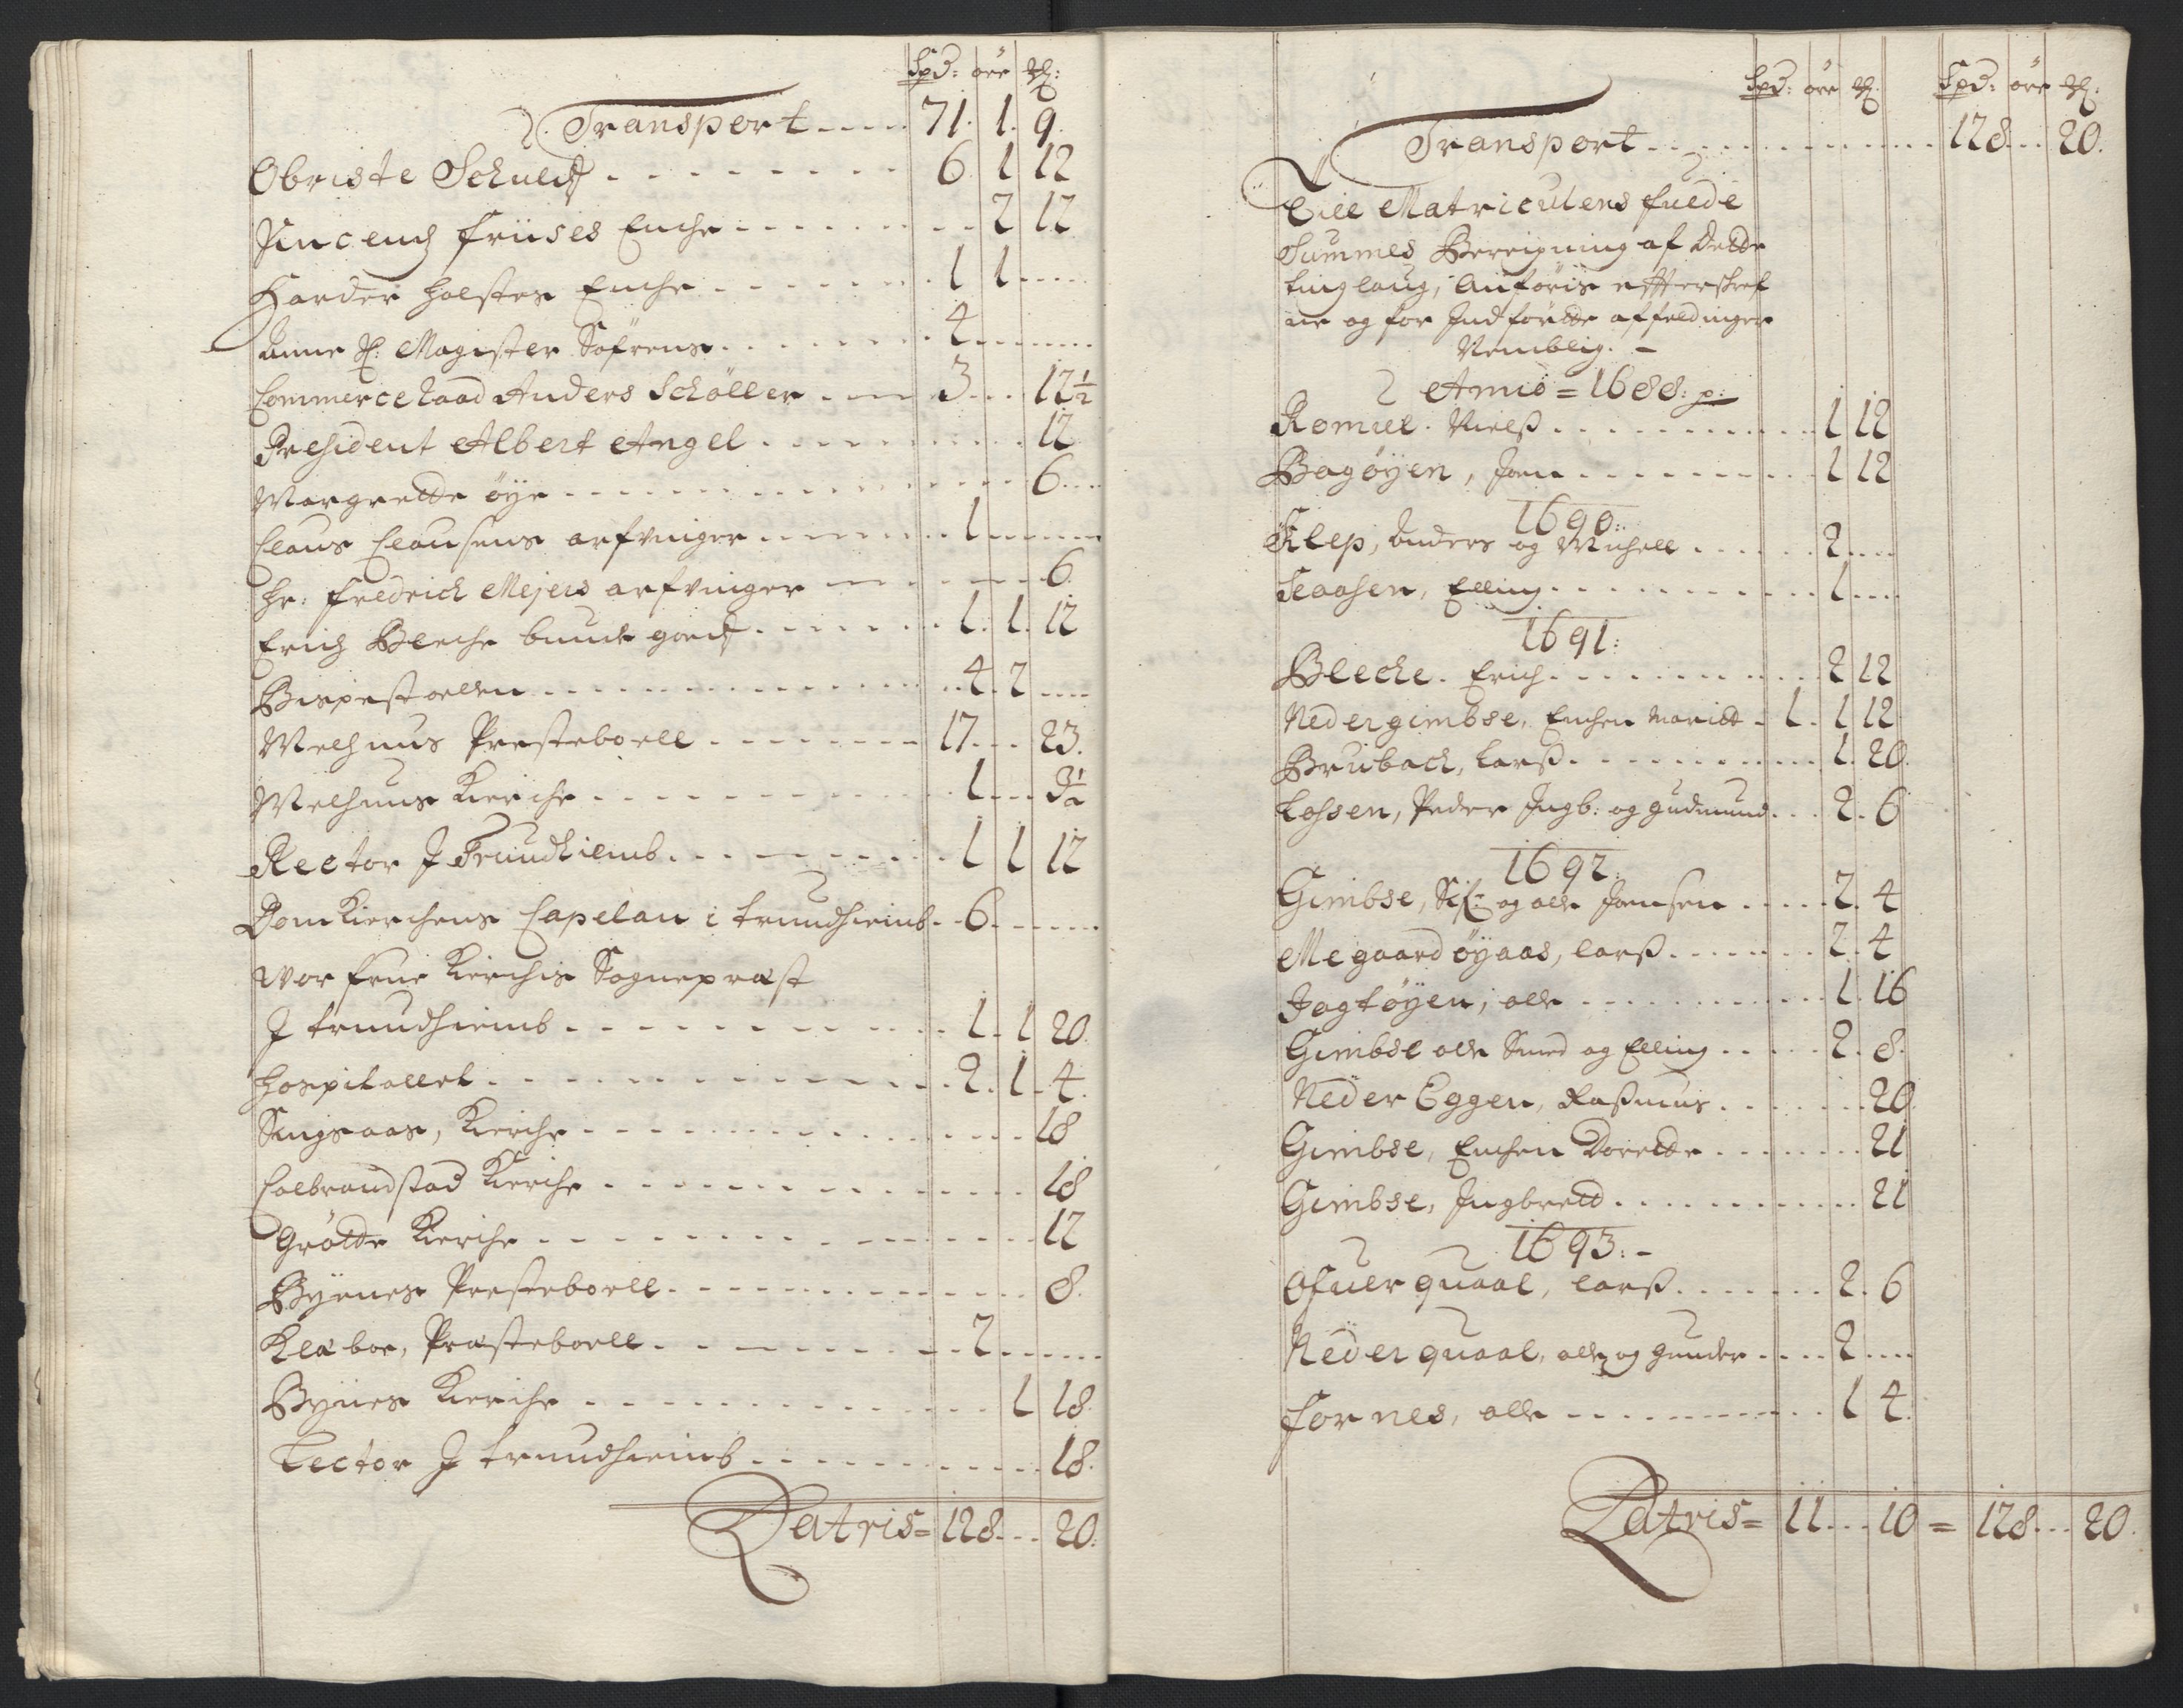 Spd: öre
Transport 71. 1. 9.
Obriste Schult 6. 1 12
Vincentz friises Enche 2 12
Harder Holstes Enche 1 1
Anne Magister Söfrens 4
Commerceraad Anders Schöller 3 12½
Præsident Albert Angel 12
Margrette öye 6
Claus Clausens arfvinger 1
Hr: fredrich Mejers arfvinger 6.
Erich Bleche bunde goeds 1. 1. 12
Bispestollen 4. 2
Melhuus Presteboell 17 23.
Melhuus Kierche 1 3½
Rector J Trundhiemb 1 1 12
Dom Kierchens Capelan i trundhiemb 6
vor frue Kierchis Sogneprest
J trundhiemb 1. 1 20.
Hospitallet 2. 1. 4.
Singsaas, Kierche 18
Colbrandstad Kierche 18
Grötte Kierche 12
Bynes Presteboell 8.
Klæboe, Præsteboell 2
Bynes Kierche 1 18.
Lector J trundhiemb 18.
Latris = 128 20.
Spd: öre Spd: öre
Transport 128 20.
Till Matriculens fulde
Summes Bereigning af dette
tinglaug, Anföris effterskref
ne og for Jndförtte affeldinger
Nemblig. -
Anno = 1688: p:
Romul. Nielß 1 12
Bagöyen, Joen 1 12
1690:
Klep, Anders og Michell 2
Slaasen, Elling 1
1691:
Bleche. Erich 2 12
Nedergimbse, Enchen Maritt 1. 1 12
Brubach, Larß 1. 20.
Lossen, Peder Jngb: og gudmund 2. 6
1692:
Gimbse, og olle Joensen 2. 4
Megaard öyaas, larß 2. 4
Jagtöyen, olle 1. 16
Gimbse olle Smed og Elling 2. 8.
Neder Eggen, Raßmus 20
Gimbse, Enchen Dorette 21
Gimbse, Jngbrett 21
1693: -
Ofuer quaal, larß 2. 6
Neder quaal, olle og gunder 2
fornes, olle 1 4.
Latris = 11 10 = 128 20.